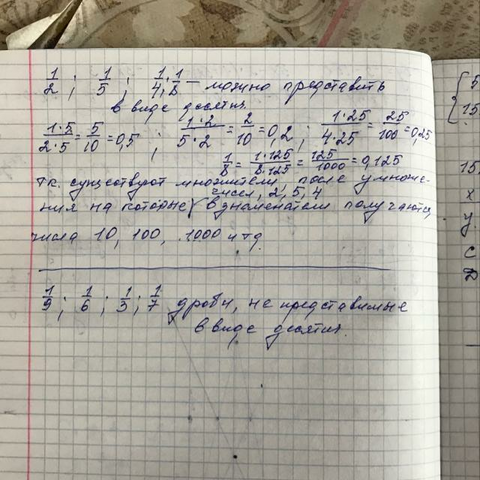 1/2 ; 1/5 ; 1/4 ; 1/8 — можно представить
в виде десятич.
1·5/2·5 = 5/10 = 0,5 ; 1·2/5·2 = 2/10 = 0,2 ; 1·25/4·25 = 25/100 = 0,25
1/8 = 1·125/8·125 = 125/1000 = 0,125
т.к. существуют множители, после умноже-
чисел, 2, 5, 4
ния на которые в знаменателе получаются
числа 10, 100, 1000 и т.д.
1/9 ; 1/6 ; 1/3 ; 1/7 дроби, не представимые
в виде десятич.
5
15
15
х
у
с